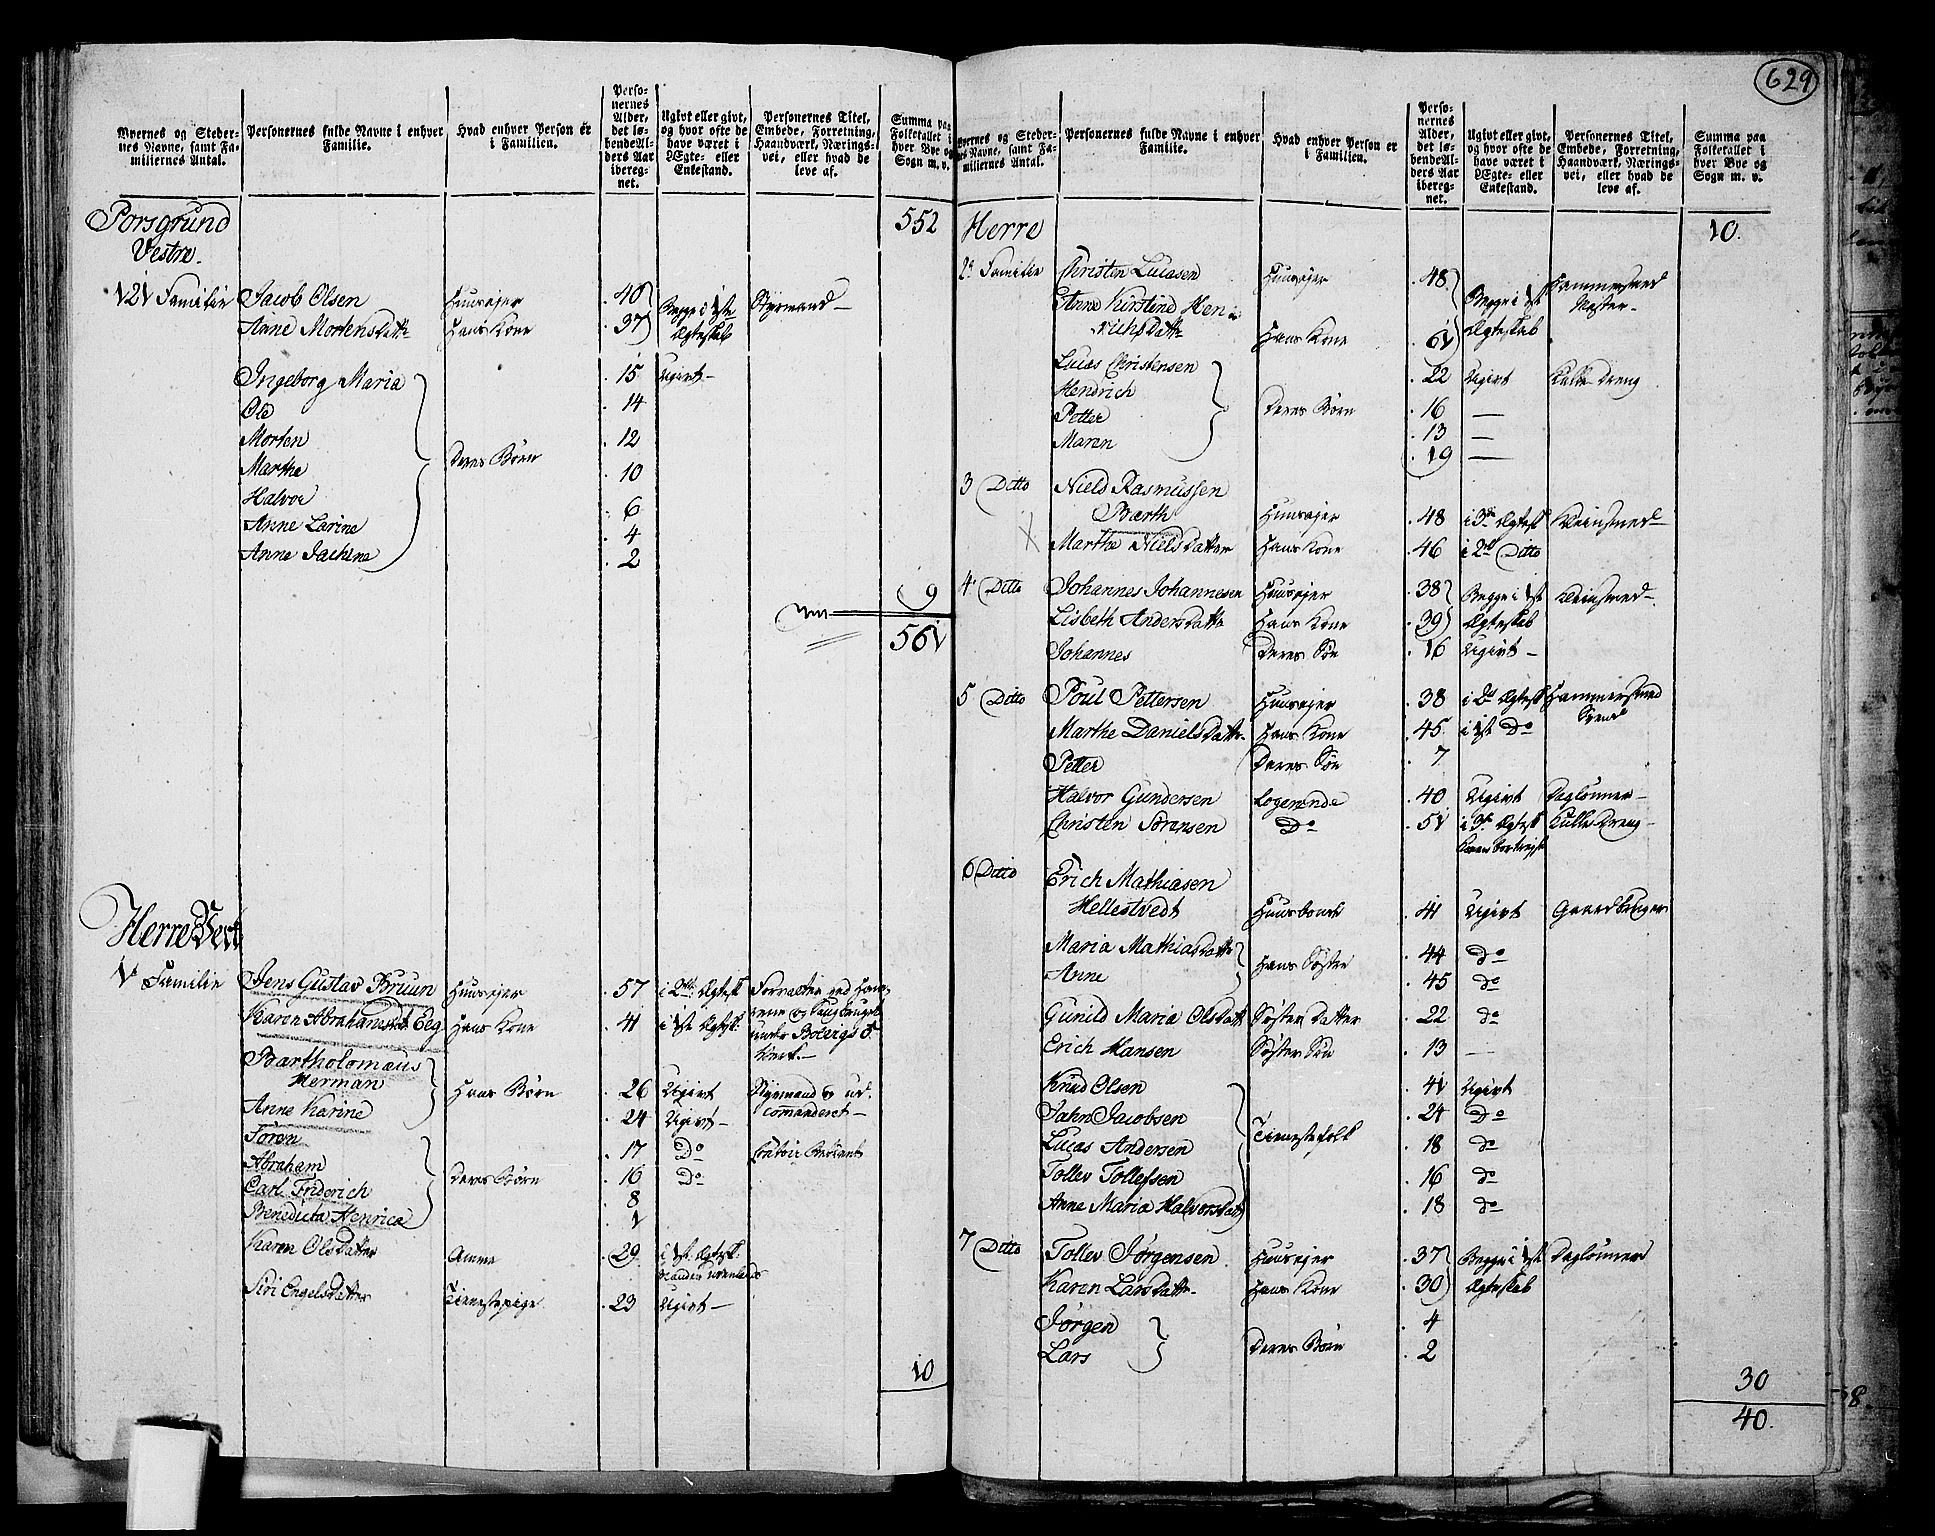 629
Byernes og Steder-
nes Navne, samt Fa-
miliernes Antal.
Personernes fulde Navne i enhver
Familie.
Hvad enhver Person er
i Familien.
Perso-
nernes
Alder,
det lø-
bende Al-
ders Aar
iberegnet.
Ugivt eller givt,
og hvor ofte de
have været i
Ægte- eller
Enkestand.
Personernes Titel,
Embede, Forretning,
Haandværk, Nærings-
vei, eller hvad de
leve af.
Summa paa
Folketallet i
hver Bye og
Sogn m. v.
Porsgrund 552
Vestre.
121 Familie Jacob Olsen Huusejer 40 Begge i 1ste Styrmand
Anne Mortensdatt. Hans Kone 37 Ægteskab
Ingeborg Maria 15 Ugivt
Ole 14
Morten 12
Marthe Deres Børn 10
Halvor 6
Anne Larine 4
Anne Jachine 2
9
561
Herre Verk
1. Familie Jens Gustav Bruun Huusejer 57 i 2det Ægtesk.
Karen Abrahamsdt Eeg Hans Kone 41 i 1st Ægtesk.
Bartholomæus
Herman Hans Børn 26 Ugivt Styrmand og ud-
Anne Karine 24 Ugivt commanderet
Søren 17 Do
Abraham Deres Børn 16 Do
Carl Friderich 8
Benedicta Henrica 1
Karen Olsdatter Amme 29 i 1st Ægtesk.
Siri Engelsdatter Tienestepige 23 Ugivt
10
Byernes og Steder-
nes Navne, samt Fa-
miliernes Antal.
Personernes fulde Navne i enhver
Familie.
Hvad enhver Person er
i Familien.
Perso-
nernes
Alder,
det lø-
bende Al-
ders Aar
iberegnet.
Ugivt eller givt,
og hvor ofte de
have været i
Ægte- eller
Enkestand.
Personernes Titel,
Embede, Forretning,
Haandværk, Nærings-
vei, eller hvad de
leve af.
Summa paa
Folketallet i
hver Bye og
Sogn m. v.
Herre 10.
2. Familie Christen Lucasen Huusejer 48 Begge i 1st Hammersmed
Anne Kirstine Hen- Mester
richsdatt. Hans Kone 61 Ægteskab
Lucas Christensen 22 Ugivt Kulle Dreng
Hendrich 16 —
Petter Deres Børn 13 —
Maren 19 —
3 Ditto Niels Rasmussen
Barth Huusejer 48 i 3die Ægtesk Kleinsmed
Marthe Nielsdatter Hans Kone 46 i 2det Ditto
4 Ditto Johannes Johannesen Huusejer 38 Begge i 1st Kleinsmed
Lisbeth Andersdatt. Hans Kone 39 Ægteskab
Johannes Deres Søn 16 Ugivt
5 Ditto Poul Pettersen Huusejer 38 i 2det Ægtesk Hammersmed
Svend
Marthe Danielsdatt. Hans Kone 45 i 1st Do
Petter Deres Søn 7
Halvor Gundersen Logerende 40 Ugivt Daglønner
Christen Sørensen Do 51 i 3d Ægtesk Kulle Dreng
6 Ditto Erich Mathiasen
Hellestvedt Huusbonde 41 Ugivt Gaardbruger
Maria Mathiasdatt. 44 do
Anne Hans Søstre 45 do
Gunild Maria Olsdatt. Søster Datter 22 do
Erich Hansen Søster Søn 13 —
Knud Olsen 41 Ugivt
Jahn Jacobsen 24 Do
Lucas Andersen Tienestefolk 18 do
Tollev Tollefsen 16 do
Anne Maria Halvorsdatt. 18 do
7 Ditto Tollev Jørgensen Huusejer 37 Begge i 1st Daglønner
Karen Larsdatt. Hans Kone 30 Ægteskab
Jørgen 4
Lars Deres Børn 2
30
40.